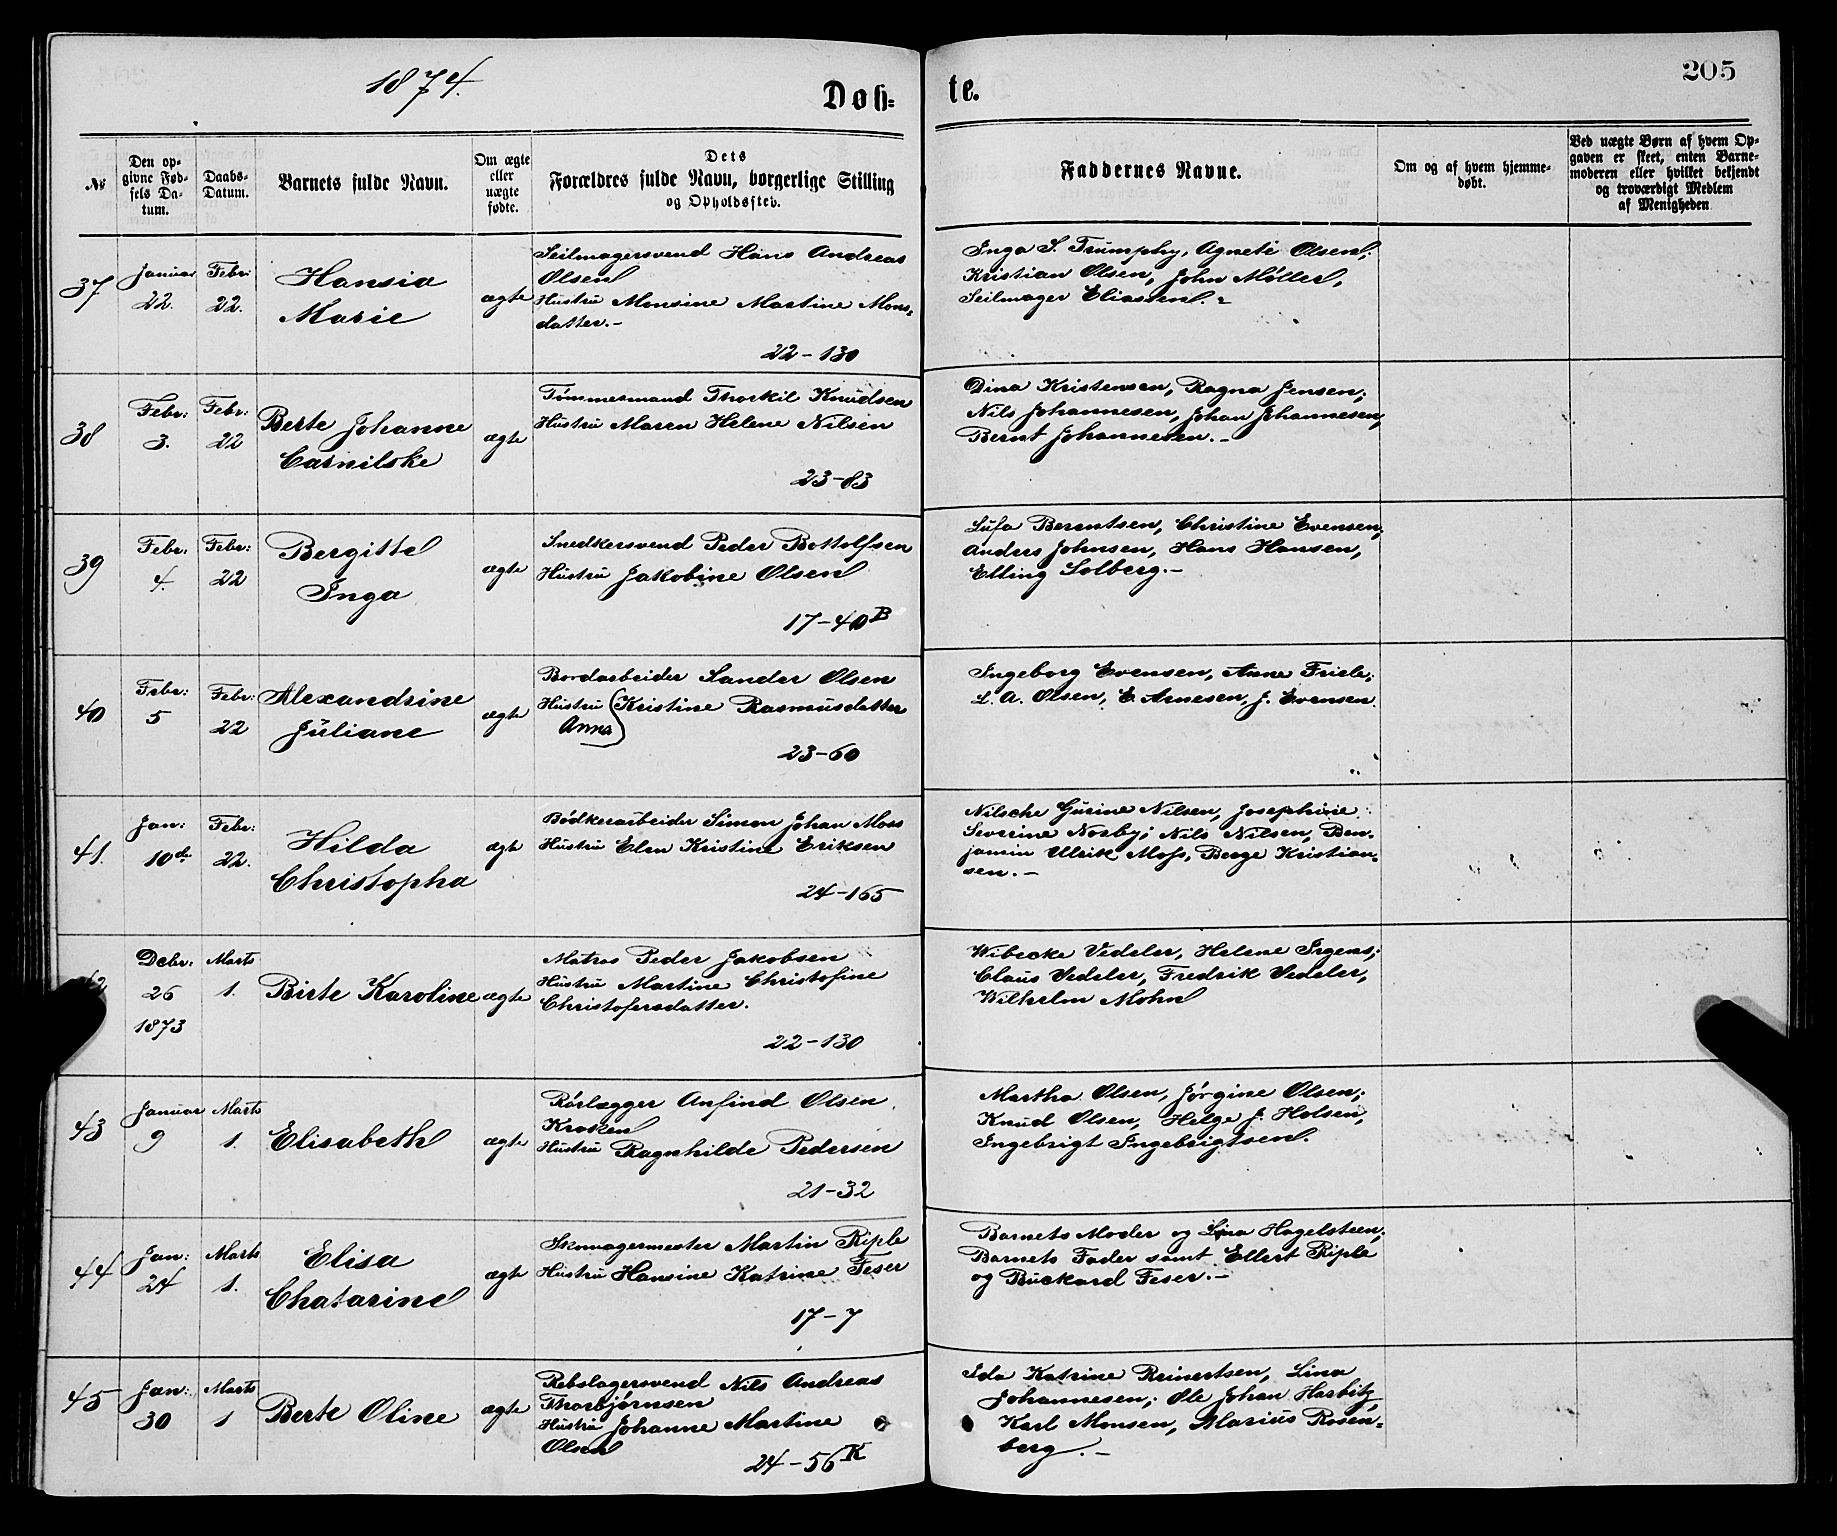 205
1874.
Døb=
te.
№
Den op-
givne Fød-
sels Da-
tum.
Daabs-
Datum.
Barnets fulde Navn.
Om ægte
eller
uægte
fødte.
Dets
Forældres fulde Navn, borgerlige Stilling
og Opholdssted.
Faddernes Navne.
Om og af hvem hjemme-
døbt.
Ved uægte Børn af hvem Op-
gaven er skeet, enten Barne-
moderen eller hvilket bekjendt
og troværdigt Medlem
af Menigheden
37
Januar
22.
Febr:
22.
Hansia
Marie
ægte
Seilmagersvend Hans Andreas
Olsen
Hustru Monsine Martine Mons=
datter.-
22-130
Inga S. Trumphy, Agnete Olsen;
Kristian Olsen, John Møller,
Seilmager Eliassen.-
38
Febr:
3.
Febr:
22
Berte Johanne
Carnilske
ægte
Tømmermand Thorkil Knudsen
Hustru Maren Helene Nilsen
23-83
Dina Kristensen, Ragna Jensen;
Nils Johannesen, Johan Johannesen,
Bernt Johannesen.-
39
Febr:
4.
Febr:
22
Bergitte
Inga
ægte
Snedkersvend Peder Bottolfsen
Hustru Jakobine Olsen
17-40 B
Lufa Berentsen, Christine Evensen;
Anders Johnsen, Hans Hansen,
Elling Solberg.-
40
Febr:
5
Febr:
22
Alexandrine
Juliane
ægte
Bordarbeider Sander Olsen
Hustru (Kristine Rasmusdatter
Anna)
23-60
Ingeborg Evensen, Anne Friele;
L. A. Olsen, E. Arnesen, J. Evensen.
41.
Jan:
10de
Febr:
22.
Hilda
Christopha
ægte
Bødkerarbeider Simon Johan Moss
Hustru Elen Kristine Eriksen
24-165
Nilsche Gurine Nilsen, Josephine
Severine Nosby; Nils Nilsen, Ben-
jamin Ulrik Moss, Berge Kristian=
sen.-
42
Decbr:
26
1873
Marts
1.
Birte Karoline
ægte
Matros Peder Jakobsen
Hustru Martine Christofine
Christofersdatter.
22-130
Wibecke Vedeler, Helene Irgens;
Claus Vedeler, Fredrik Vedeler,
Wilhelm Mohn
43
Januar
9
Marts
1.
Elisabeth
ægte
Rørlægger Anfind Olsen
Kroken
Hustru Ragnhilde Pedersen
21-32
Martha Olsen, Jørgine Olsen;
Knud Olsen, Helge J. Holsen,
Ingebrigt Ingebrigtsen.
44
Jan:
24
Marts
1.
Elisa
Chatarine
ægte
Skomagermester Martin Riple
Hustru Hansine Katrine Feser
17-7
Barnets Moder og Lina Hagelsteen;
Barnets Fader samt Ellert Riple
og Buckard Feser.-
45
Jan:
30
Marts
1
Berte Oline
ægte
Rebslagersvend Nils Andreas
Thorbjørnsen
Hustru Johanne Martine
Olsen
24-56 K
Ida Katrine Reinertsen, Lina
Johannesen; Ole Johan Harbitz,
Karl Monsen, Marius Rosen=
berg.-